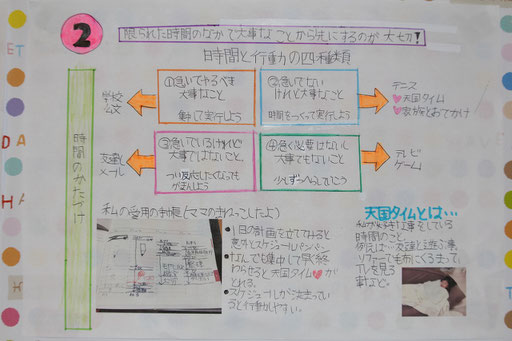 2
限られた時間のなかで大事なことから先にするのが大切!
時間と行動の四種類
時間のかたづけ
学校
公文
①急いでやるべき
大事なこと
集中して実行しよう
②急いでない
けれど大事なこと
時間をつくって実行しよう
テニス
天国タイム
家族とおでかけ
友達と
メール
③急いでいるけれど
大事ではないこと。
つい反応したくなっても
がまんしよう
④急ぐ必要はないし
大事でもないこと
少しずつへらしていこう
テレビ
ゲーム
私の愛用の手帳(ママのまねっこしたよ)
1日の計画を立ててみると
意外とスケジュールパンパン
なんでも集中して早く終
わらせると天国タイムが
とれる。
スケジュールが決まってい
ると行動しやすい。
天国タイムとは…
私が好きな事をしている
時間のこと
例えば…友達と遊ぶ事、
ソファーでも布にくるまって、
TVを見る
事など。